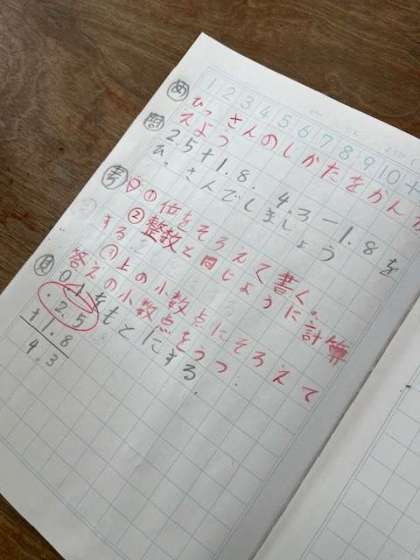 1 2 3 4 5 6 7 8 9 10 +
め ひっさんのしかたをかんが
えよう
問 2.5+1.8. 4.3-1.8を
ひっさんでしましょう
考 ①位をそろえて書く。
②整数と同じように計算
する ③上の小数点にそろえて
答えの小数点をうつ.
0.1をもとにする.
2.5
+1.8
4.3